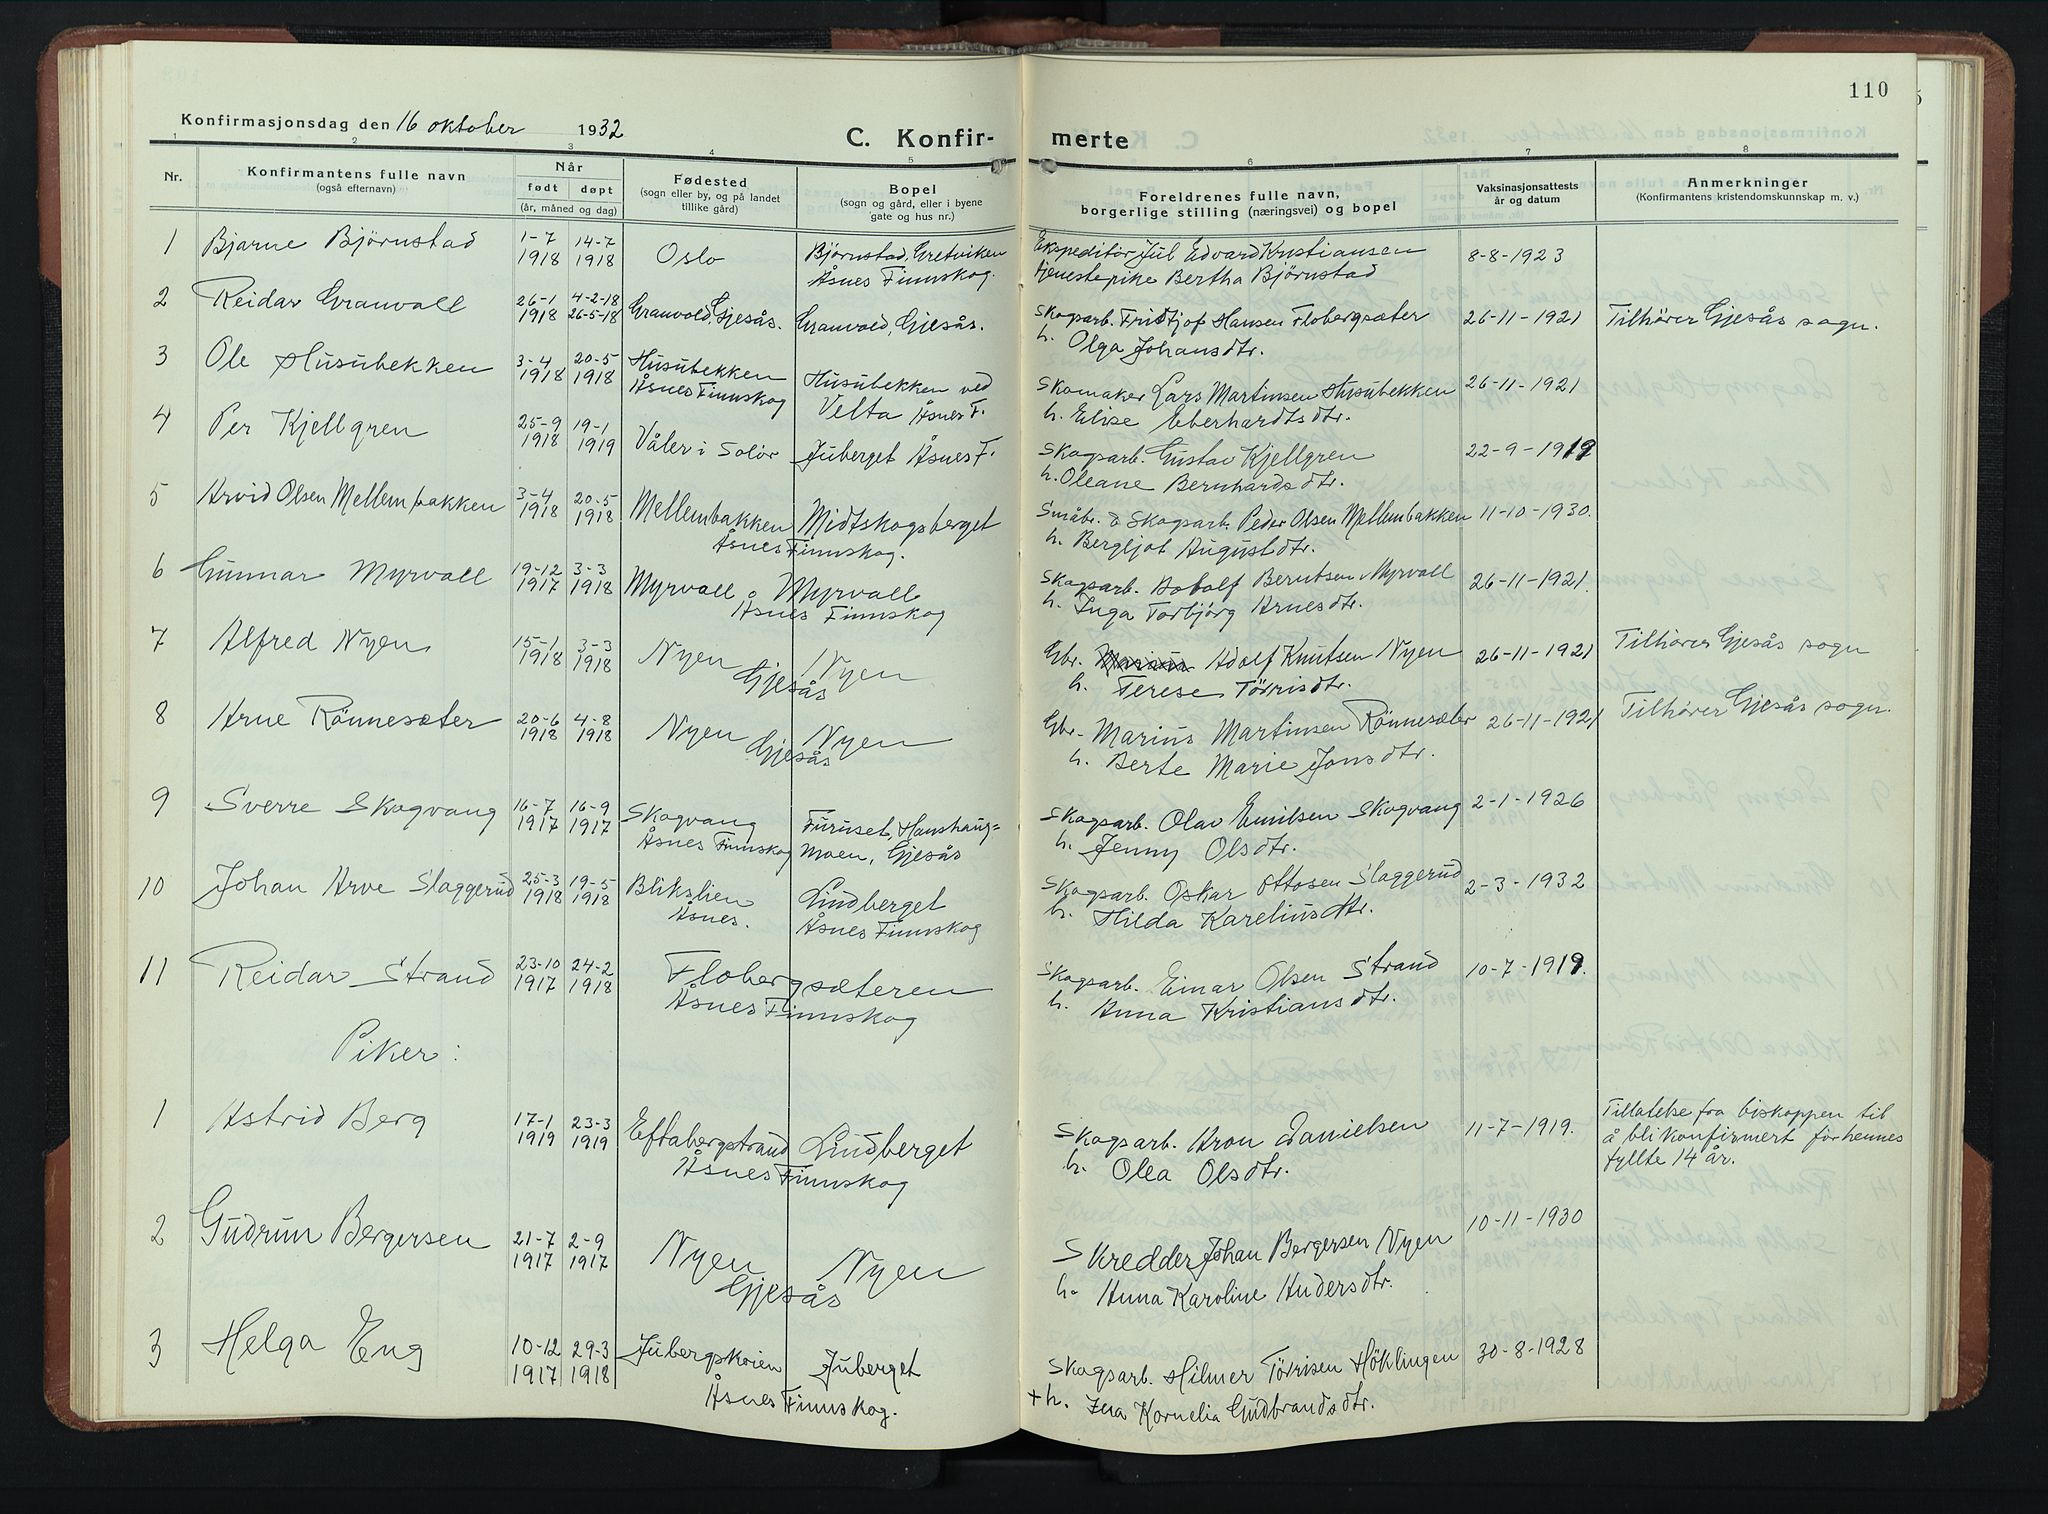 110
Konfirmasjonsdag den 16 oktober 1932
C. Konfir- merte
1 2 3 4 5 6 7 8
Nr.
Konfirmantens fulle navn
(også efternavn)
Når
født døpt
(år, måned og dag)
Fødested
(sogn eller by, og på landet
tillike gård)
Bopel
(sogn og gård, eller i byene
gate og hus nr.)
Foreldrenes fulle navn,
borgerlige stilling (næringsvei) og bopel
Vaksinasjonsattests
år og datum
Anmerkninger
(Konfirmantens kristendomskunnskap m. v.)
1 Bjarne Björnstad 1-7 14-7 Oslo Björnstad, Gretviken Ekspeditör Jul Edvard Kristiansen 8-8-1923
1918 1918 Åsnes Finnskog. tjenestepike Bertha Björnstad
2 Reidar Granvall 26-1 4-2-18 Granvold, Gjesås. Granvold, Gjesås. Skogsarb. Fridtjof Hansen Flobergsæter 26-11-1921 Tilhörer Gjesås sogn.
1918 26-5-18 h. Olga Johansdtr.
3 Ole Husubekken 3-4 20-5 Husubekken Husubekken ved Skomaker Lars Martinsen Husubekken 26-11-1921
1918 1918 Åsnes Finnskog Velta Åsnes F. h. Elise Eberhardtsdtr.
4 Per Kjellgren 25-9 19-1 Våler i Solör Juberget Åsnes F. Skogsarb. Gustav Kjellgren 22-9-1919
1918 1919 h. Oleane Bernhardsdtr.
5 Arvid Olsen Mellembakken 3-4 20-5 Mellembakken Midtskogsberget Småbr. & Skogsarb. Peder Olsen Mellembakken 11-10-1930.
1918 1918 Åsnes Finnskog. h. Bergljot Augustdtr.
6 Gunnar Myrvall 19-12 3-3 Myrvall Myrvall Skogsarb. Adolf Berntsen Myrvall 26-11-1921.
1917 1918 Åsnes Finnskog h. Inga Torbjörg Arnesdtr.
7 Alfred Nyen 15-1 3-3 Nyen Nyen Gbr. Adolf Knutsen Nyen 26-11-1921 Tilhörer Gjesås sogn
1918 1918 Gjesås h. Terese Törrisdtr.
8 Arne Rönnesæter 20-6 4-8 Nyen Nyen Gbr. Marius Martinsen Rönnesæter 26-11-1921 Tilhörer Gjesås sogn.
1918 1918 Gjesås h. Berte Marie Jonsdtr.
9 Sverre Skogvang 16-7 16-9 Skogvang Furuset, Hanshaug= Skogsarb. Olav Emilsen Skogvang 2-1-1926
1917 1917 Åsnes Finnskog moen, Gjesås h. Jenny Olsdtr.
10 Johan Arve Slaggerud 25-3 19-5 Blikslien Lindberget Skogsarb. Oskar Ottosen Slaggerud 2-3-1932
1918 1918 Åsnes. Åsnes Finnskog h. Hilda Kareliusdtr.
11 Reidar Strand 23-10 24-2 Flobergsæteren Skogsarb. Einar Olsen Strand 10-7-1919.
1917 1918 Åsnes Finnskog h. Anna Kristiansdtr.
Piker:
1 Astrid Berg 17-1 23-3 Eftabergstrand Lindberget Skogsarb. Aron Danielsen 11-7-1919. Tillatelse fra biskoppen til
1919 1919 Åsnes Finnskog h. Olea Olsdtr. å bli konfirmert för hennes
fyllte 14 år.
2 Gudrun Bergersen 21-7 2-9 Nyen Nyen Skredder Johan Bergersen Nyen 10-11-1930
1917 1917 Gjesås h. Anna Karoline Andersdtr.
3 Helga Eng 10-12 29-3 Jubergskoien Juberget Skogsarb. Hilmer Törrisen Höklingen 30-8-1928
1917 1918 Åsnes Finnskog. + h. Ina Kornelia Gudbrandsdtr.